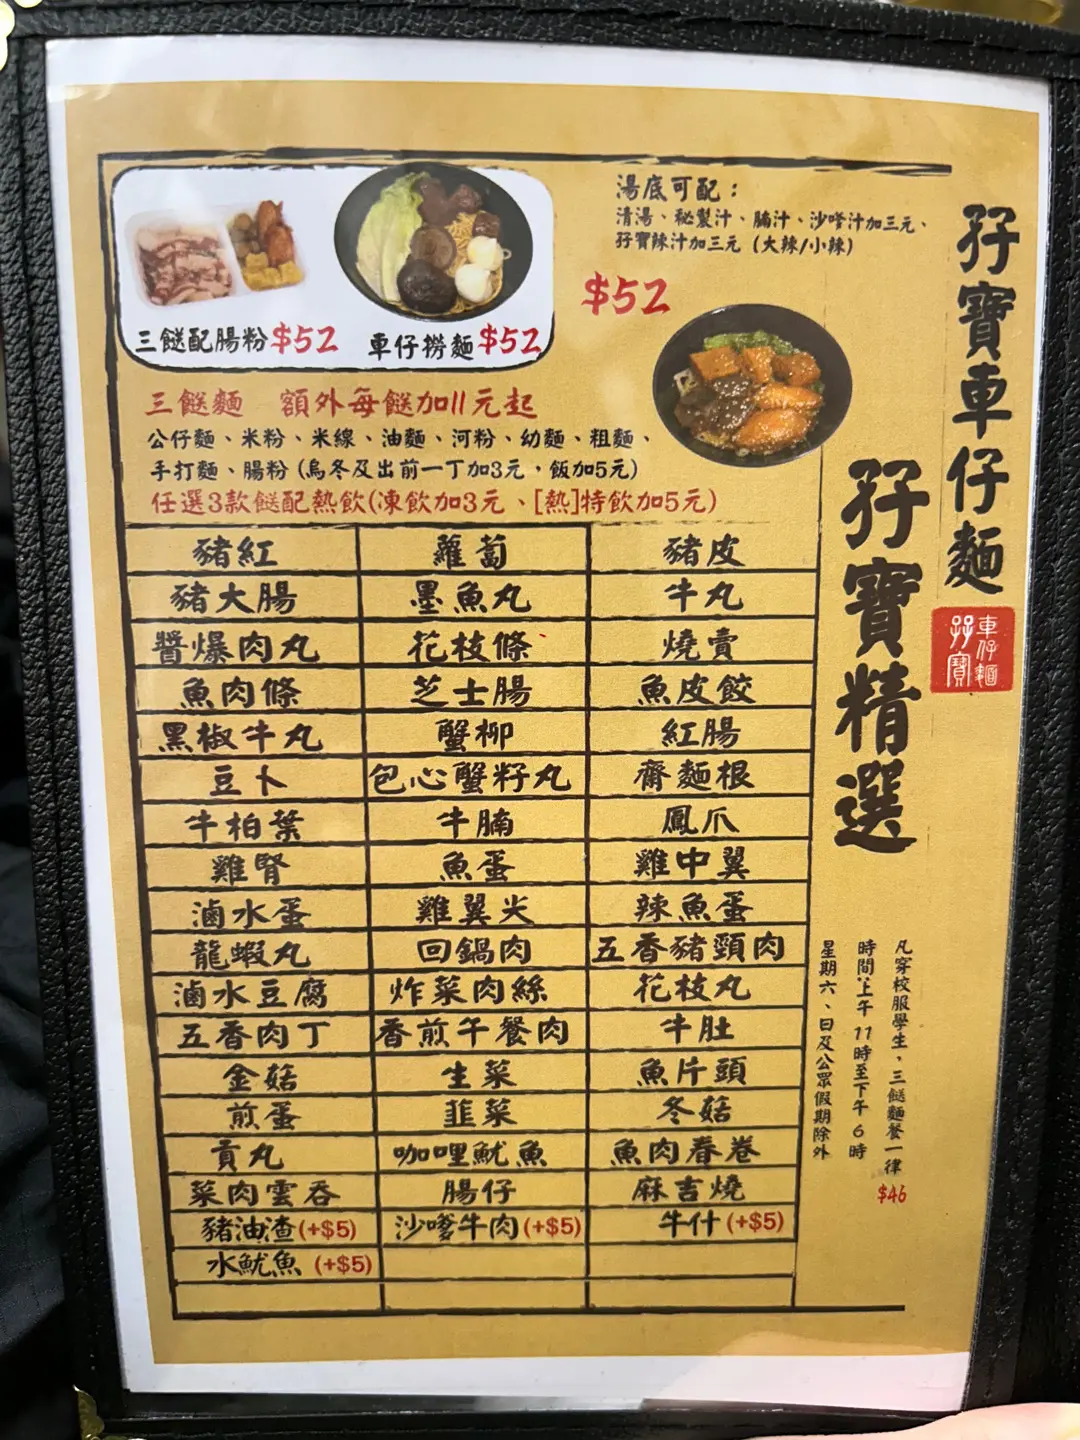 孖寶車仔麵
孖寶精選
車仔麵
孖寶
三餸配腸粉$52
車仔撈麵$52
湯底可配：
清湯、秘製汁、腩汁、沙嗲汁加三元、
孖寶辣汁加三元（大辣/小辣）
$52
三餸麵　額外每餸加11元起
公仔麵、米粉、米線、油麵、河粉、幼麵、粗麵、
手打麵、腸粉(烏冬及出前一丁加3元，飯加5元)
任選3款餸配熱飲(凍飲加3元、[熱]特飲加5元)
豬紅 蘿蔔 豬皮
豬大腸 墨魚丸 牛丸
醬爆肉丸 花枝條 燒賣
魚肉條 芝士腸 魚皮餃
黑椒牛丸 蟹柳 紅腸
豆卜 包心蟹籽丸 齋麵根
牛柏葉 牛腩 鳳爪
雞腎 魚蛋 雞中翼
滷水蛋 雞翼尖 辣魚蛋
龍蝦丸 回鍋肉 五香豬頸肉
滷水豆腐 炸菜肉絲 花枝丸
五香肉丁 香煎午餐肉 牛肚
金菇 生菜 魚片頭
煎蛋 韮菜 冬菇
貢丸 咖哩魷魚 魚肉春卷
菜肉雲吞 腸仔 麻吉燒
豬油渣(+$5) 沙嗲牛肉(+$5) 牛什(+$5)
水魷魚 (+$5)
凡穿校服學生，三餸麵餐一律$46
時間:上午11時至下午6時
星期六、日及公眾假期除外